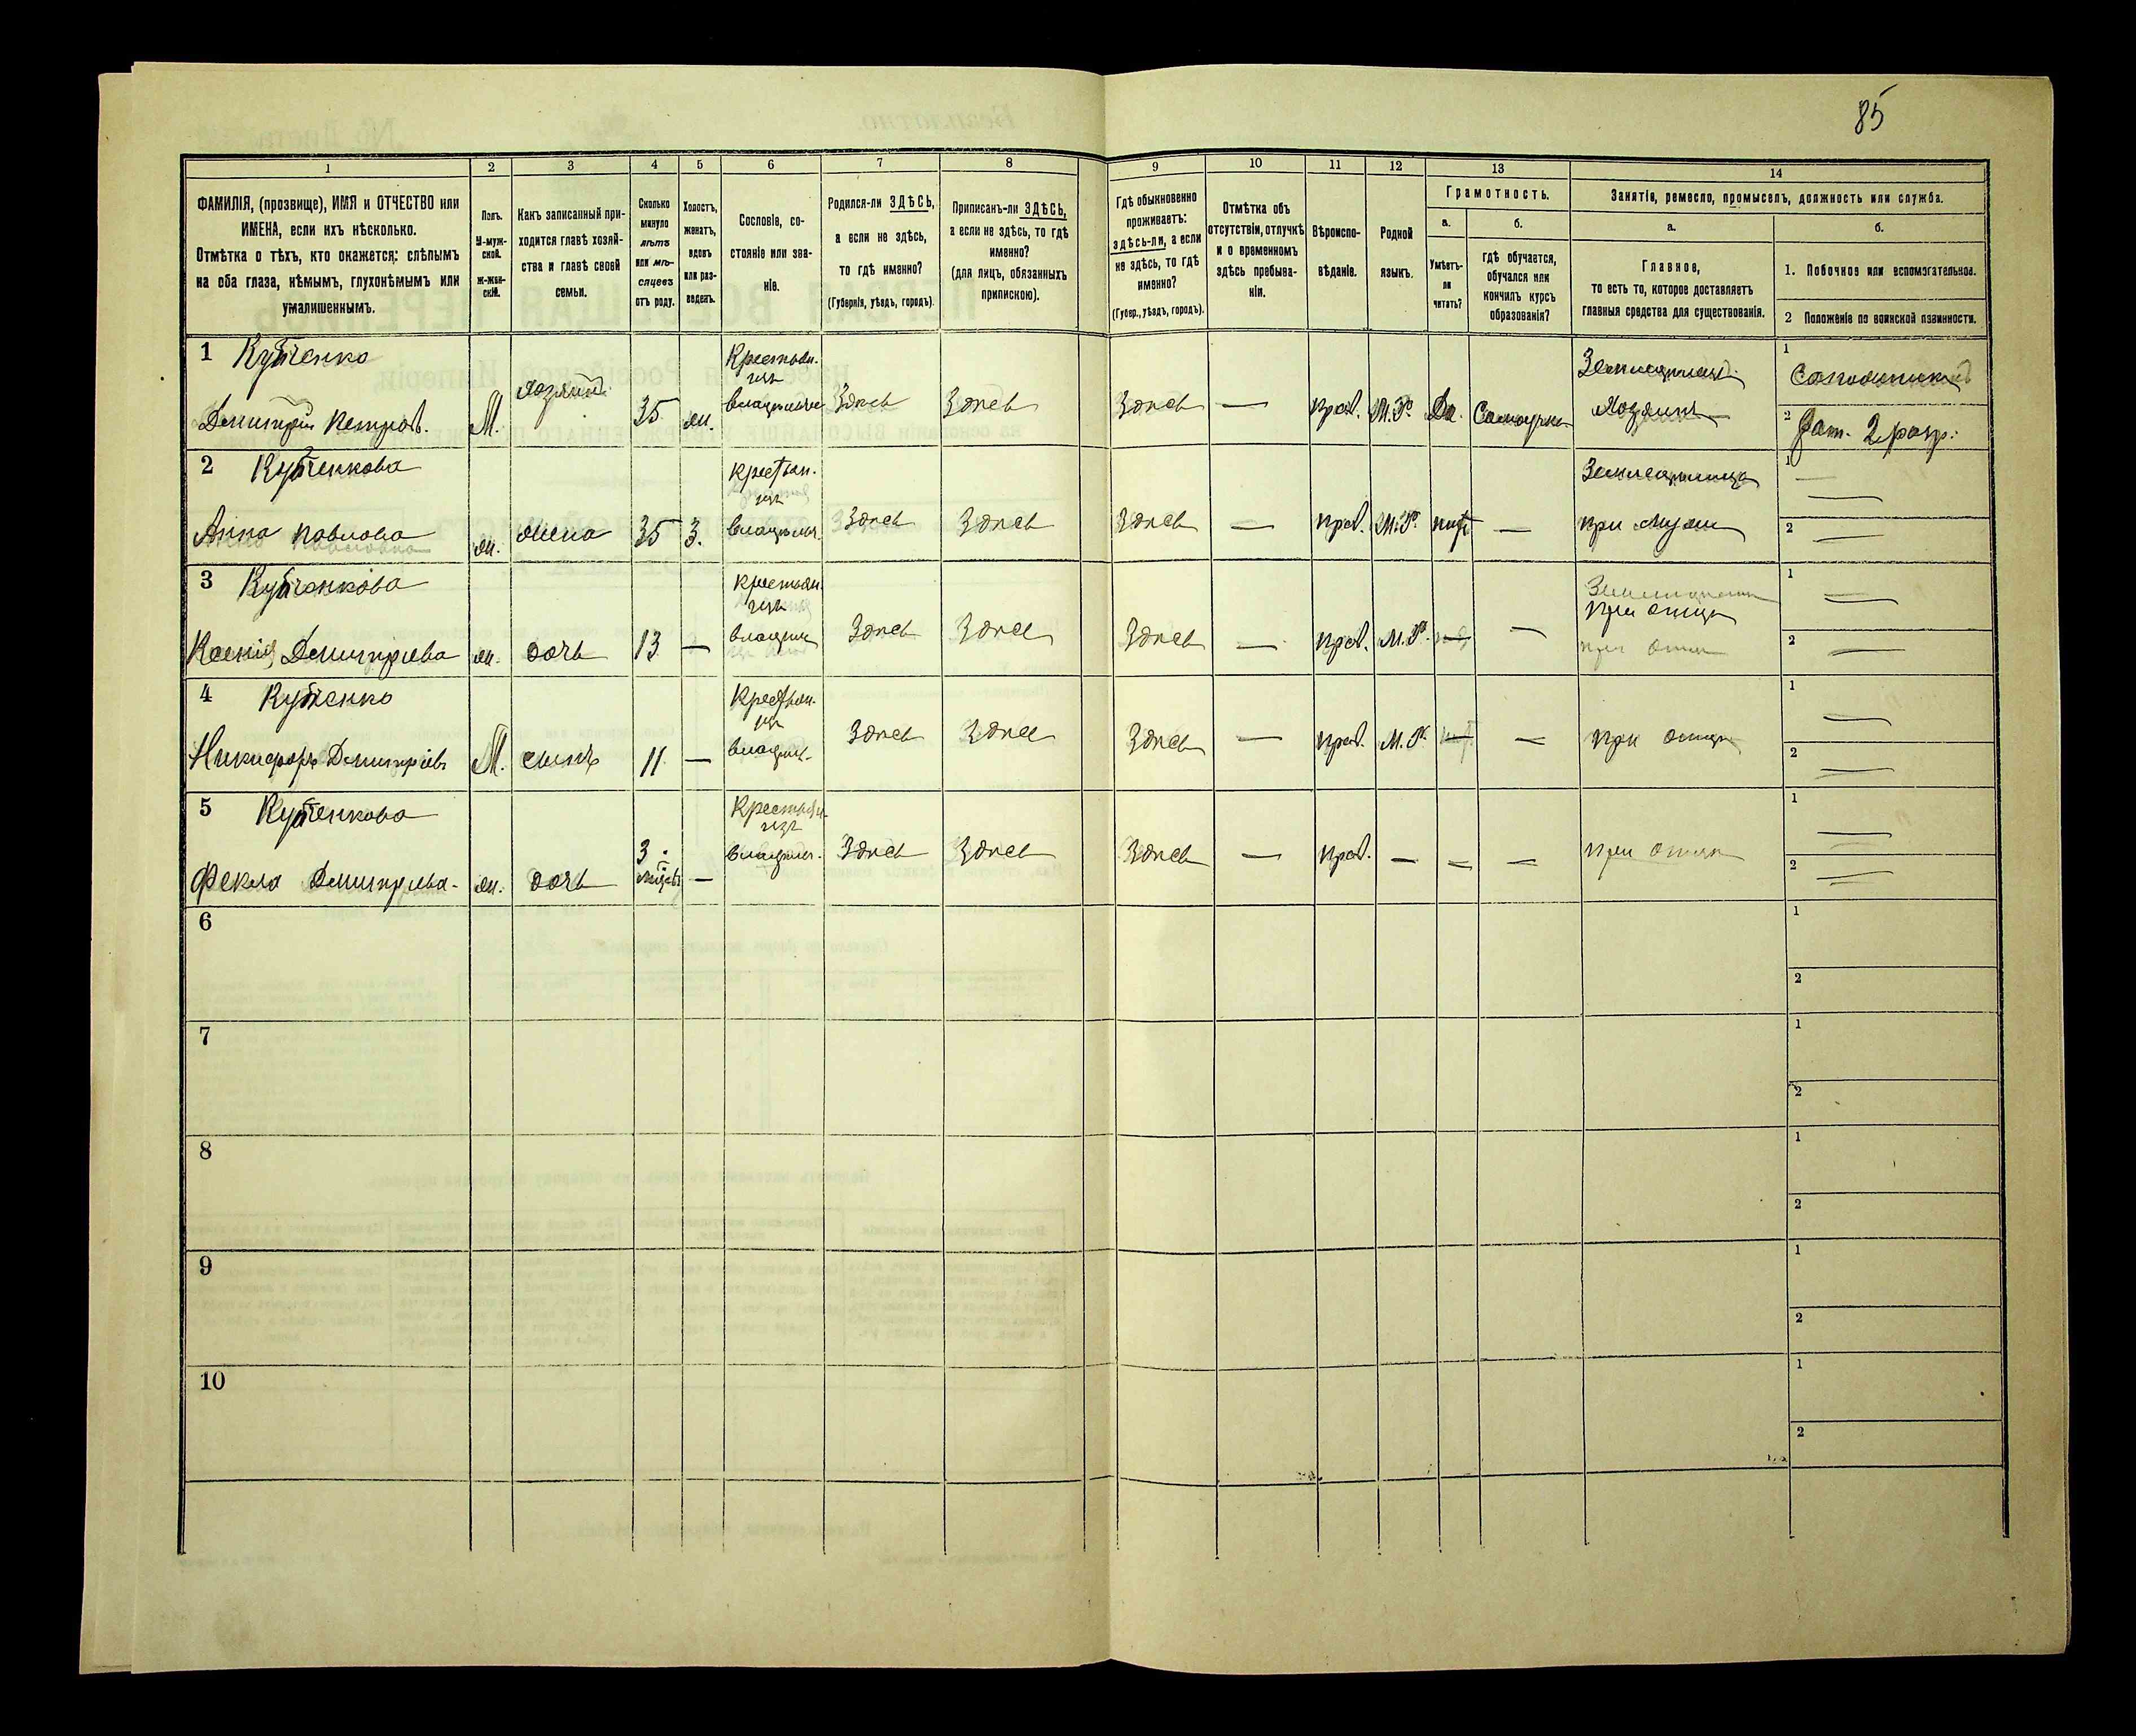 85
1
2
3
4
5
6
7
8
9
10
11
12
13
14
ФАМИЛІЯ, (прозвище), ИМЯ и ОТЧЕСТВО или
ИМЕНА, если ихъ нѣсколько.
Отмѣтка о тѣхъ, кто окажется: слѣпымъ
на оба глаза, нѣмымъ, глухонѣмымъ или
умалишеннымъ.
Полъ.
М-муж-
ской.
ж-жен-
скій.
Какъ записанный при-
ходится главѣ хозяй-
ства и главѣ своей
семьи.
Сколько
минуло
лѣтъ
или мѣ-
сяцевъ
отъ роду.
Холостъ,
женатъ,
вдовъ
или раз-
веденъ.
Сословіе, со-
стояніе или зва-
ніе.
Родился-ли ЗДѢСЬ,
а если не здѣсь,
то гдѣ именно?
(Губернія, уѣздъ, городъ).
Приписанъ-ли ЗДѢСЬ,
а если не здѣсь, то гдѣ
именно?
(для лицъ, обязанныхъ
припискою).
Гдѣ обыкновенно
проживаетъ:
здѣсь-ли, а если
не здѣсь, то гдѣ
именно?
(Губер., уѣздъ, городъ).
Отмѣтка объ
отсутствіи, отлучкѣ
и о временномъ
здѣсь пребыва-
ніи.
Вѣроиспо-
вѣданіе.
Родной
языкъ.
Грамотность.
а.
Умѣетъ-
ли
читать?
б.
гдѣ обучается,
обучался или
кончилъ курсъ
образованія?
Занятіе, ремесло, промыселъ, должность или служба.
а.
Главное,
то есть то, которое доставляетъ
главныя средства для существованія.
б.
1. Побочное или вспомогательное.
2 Положеніе по воинской повинности.
1 Кутченко
Дмитрій Петровъ.
М.
Хозяинъ
35
ж.
Крестьян.
изъ
владѣльче
Здѣсь
Здѣсь
Здѣсь
—
прав.
М.Р.
Да.
Самоучка
Земледѣлецъ
Хозяинъ
1
Сапожникъ
2
Рат. 2 разр.
2 Кутченкова
Анна Павлова
ж.
жена
35
З.
Крестьян.
изъ
владѣльч.
Здѣсь
Здѣсь
Здѣсь
—
прав.
М.Р.
нѣт
—
при мужѣ
1 —
2 —
3 Кутченкова
Ксенія Дмитріева
ж.
дочь
13
—
Крестьян.
изъ
владѣльч
Здѣсь
Здѣсь
Здѣсь
—
прав.
М.Р.
—
—
при отцѣ
при отцѣ
1 —
2 —
4 Кутченко
Никифоръ Дмитріевъ
М.
сынъ
11
—
Крестьян.
изъ
владѣльч.
Здѣсь
Здѣсь
Здѣсь
—
прав.
М.Р.
—
при отцѣ
1 —
2 —
5 Кутченкова
Фекла Дмитріева
ж.
дочь
3
мѣсяц
—
Крестьян.
изъ
владѣльч.
Здѣсь
Здѣсь
Здѣсь
—
прав.
—
—
—
при отцѣ
1 —
2 —
6
1
2
7
1
2
8
1
2
9
1
2
10
1
2